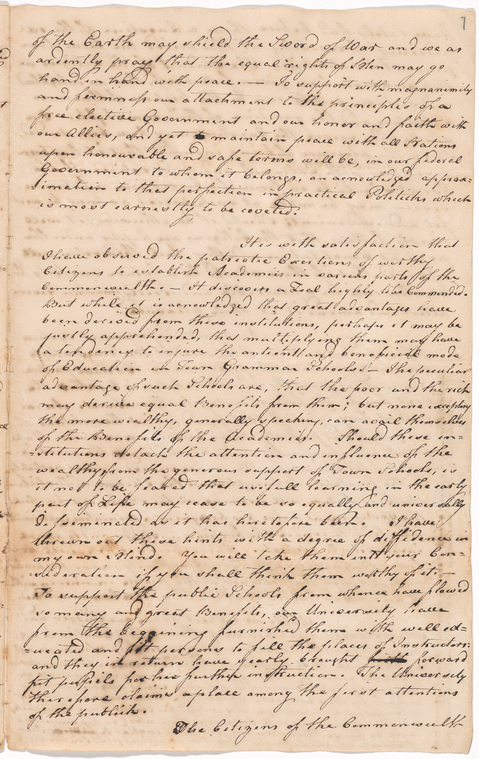 7
of the Earth may shield the Sword of War and we as
ardently pray that the equal rights of Men may go
hand in hand with peace. — To support with magnanimity
and firmness our attachment to the principles of a
free elective Government and our honor and faith with
our Allies, and yet to maintain peace with all Nations
upon honourable and safe terms will be, in our federal
Government to whom it belongs, an acknowledged approx=
imation to that perfection in practical Politicks which
is most earnestly to be coveted.
It is with satisfaction that
I have observed the patriotic Exertions of worthy
Citizens to establish Academies in various parts of the
Commonwealth. — It discovers a Zeal highly to be Commended.
But while it is acknowledged that great advantages have
been derived from these institutions, perhaps it may be
justly apprehended, that multiplying them may have
a tendency to injure the antient and beneficial mode
of Education in Town Grammar Schools — The peculiar
advantage of such Schools are, that the poor and the rich
may derive equal Benefits from them; but none excepting
the more wealthy, generally speaking, can avail themselves
of the Benefits of the Academies. Should these in=
stitutions detach the attention and influence of the
wealthy from the generous support of Town Schools, is
it not to be feared that usefull learning in the early
part of Life may cease to be so equally and universally
disseminated as it has heretofore been. I have
thrown out these hints with a degree of diffidence in
my own Mind. You will take them into your Con=
sideration if you shall think them worthy of it. —
To support the public Schools from whence have flowed
so many and great Benefits, our University have
from the beginning furnished them with well ed=
ucated and fit persons to fill the places of Instructors:
and they in return have yearly brought forward
fit pupils for her further instruction. The University
therefore claims a place among the first attentions
of the publick.
The Citizens of the Commonwealth